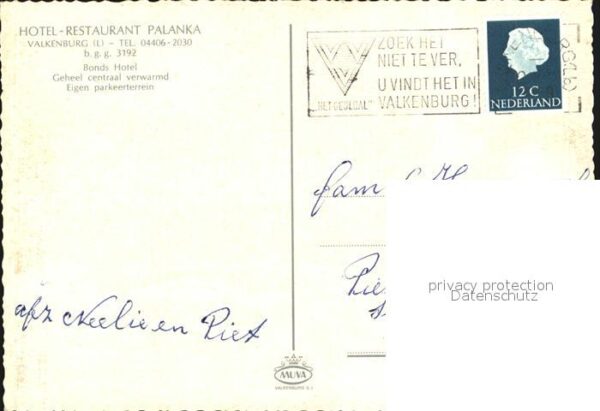 HOTEL-RESTAURANT PALANKA
VALKENBURG (L) - TEL. 04406-2030
b. g. g. 3192
Bonds Hotel
Geheel centraal verwarmd
Eigen parkeerterrein
ZOEK HET
NIET TE VER,
U VINDT HET IN
"HET GEULDAL" VALKENBURG!
12 C
NEDERLAND
fam
privacy protection
Datenschutz
afz Neelie en Piet
MUVA
VALKENBURG